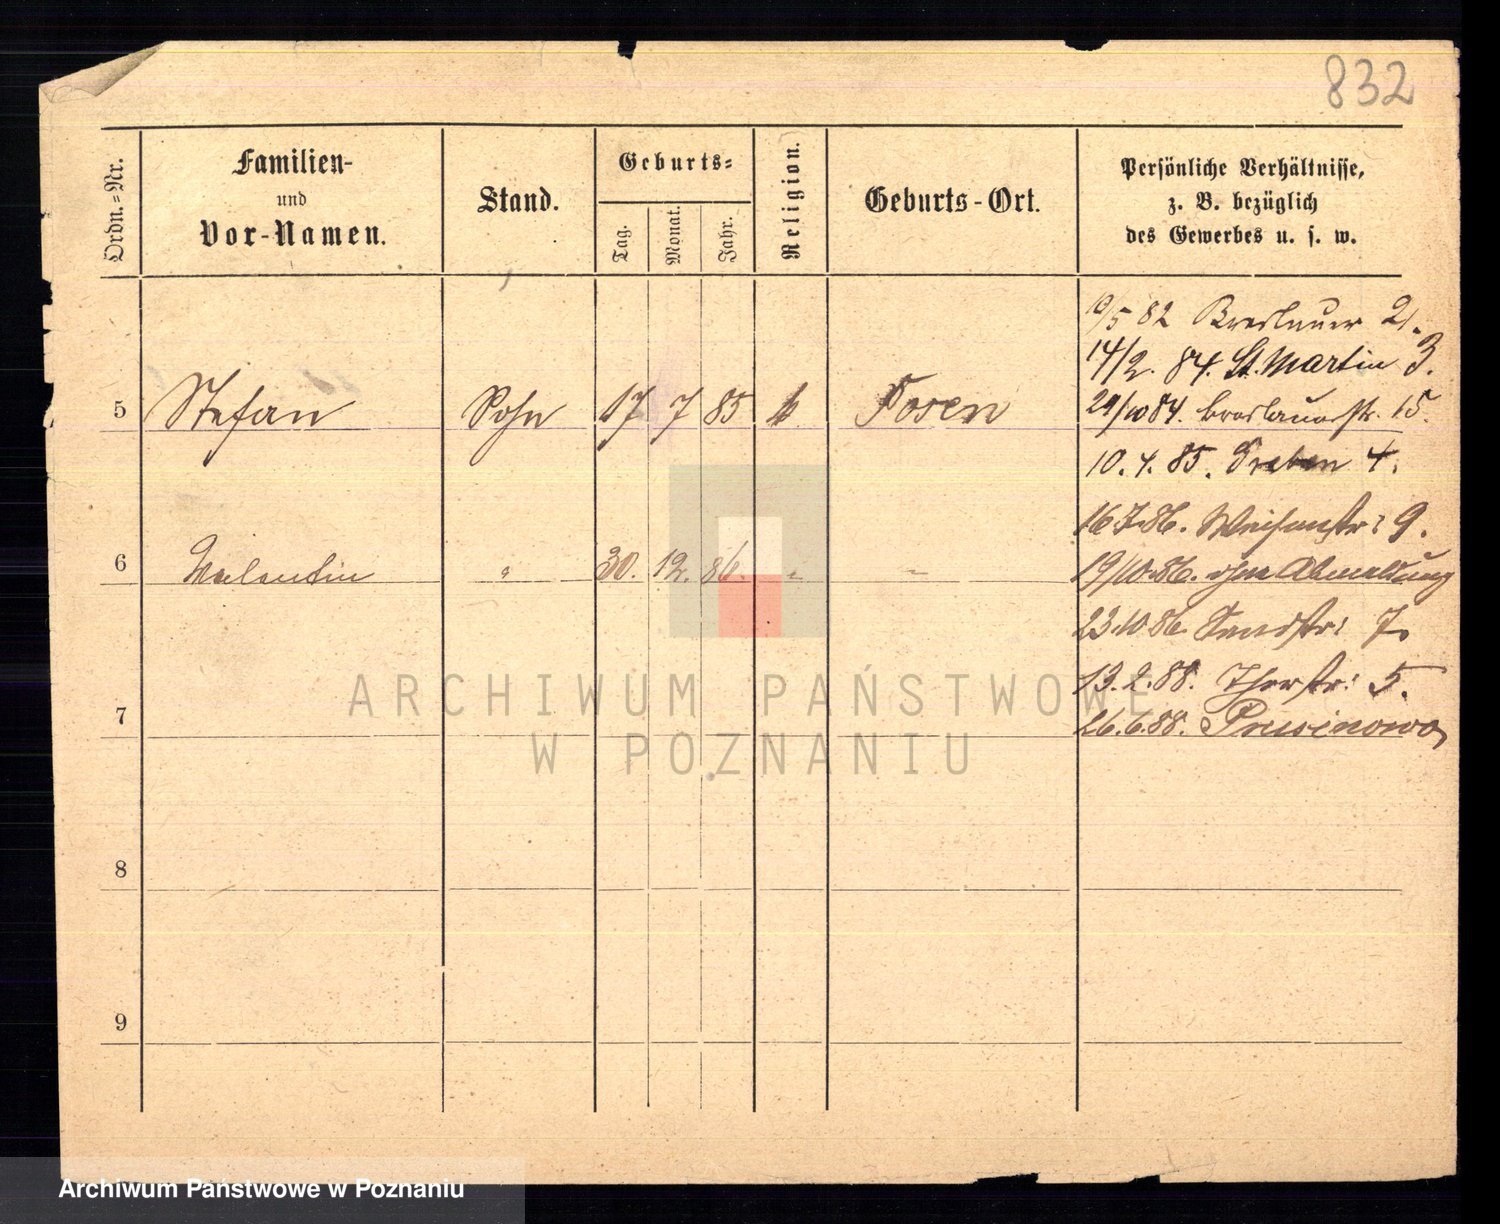 832
Ordn.-Nr.
Familien-
und
Vor-Namen.
Stand.
Geburts-
Tag.
Monat.
Jahr.
Religion.
Geburts-Ort.
Persönliche Verhältnisse,
z. B. bezüglich
des Gewerbes u. s. w.
5 Stefan Sohn 17 7 85 k Posen
6 Valentin " 30. 12. 86. " "
7
8
9
/5 82 Breslauer 21.
14/2. 84. St. Martin 3.
29/10 84. Breslauerstr. 15.
10. 4. 85. Graben 4.
16.7.86. 9.
19/10.86. ohne Abmeldung
23.10.86. Sandstr: 7.
13.2.88. Thorstr: 5.
26.6.88. Prusinowo
ARCHIWUM PAŃSTWOWE
W POZNANIU
Archiwum Państwowe w Poznaniu